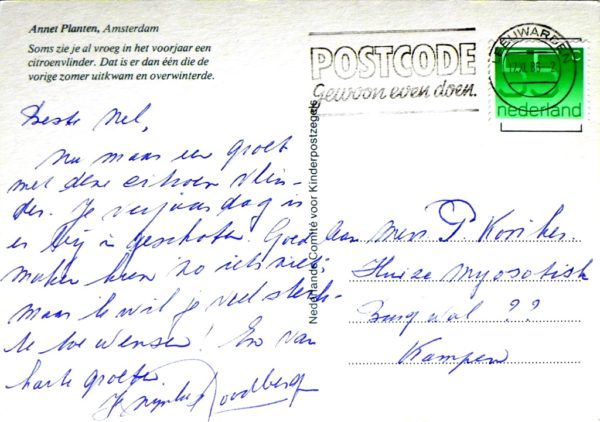 Annet Planten, Amsterdam
Soms zie je al vroeg in het voorjaar een
citroenvlinder. Dat is er dan één die de
vorige zomer uitkwam en overwinterde.
POSTCODE
Gewoon even doen.
LEEUWARDEN
nederland
Nederlands Comité voor Kinderpostzegels
Beste Nel,
Nu maar een groet
met deze citroen vlin-
der. Je verjaardag is
er bij in geschoten. Goed
maken kun zo iets niet,
maar ik wil je veel sterk-
te toe wensen! En van
harte groeten.
Aan Mevr. P.
Huize Myosotis
Burgwal ??
Kampen